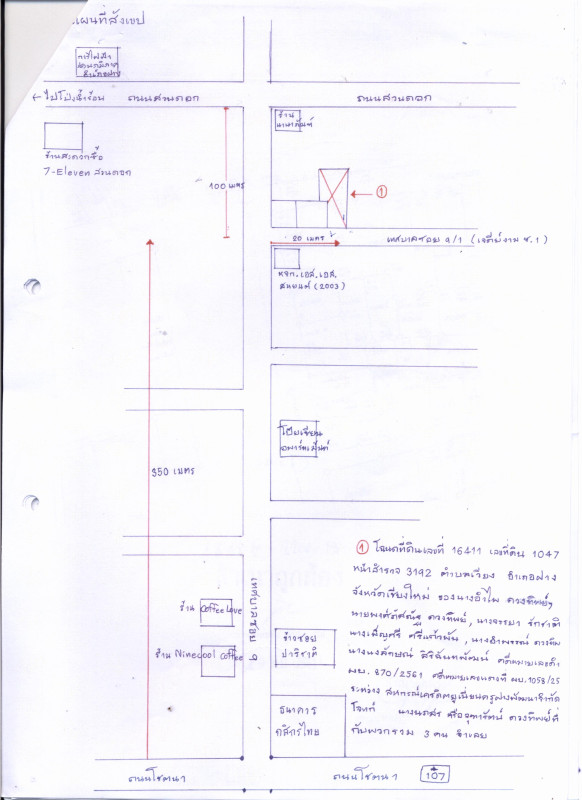 แผนที่สังเขป
การไฟฟ้า
ส่วนภูมิภาค
อำเภอฝาง
← ไปโป่งน้ำร้อน ถนนสวนดอก
ถนนสวนดอก
ร้าน
ร้านสะดวกซื้อ
7-Eleven สวนดอก
100 เมตร
①
20 เมตร
เทศบาลซอย 9/1 (เจดีย์งาม ซ.1)
หจก. เอส.เอส.
สหยนต์ (2003)
อพาร์ตเม้นท์
350 เมตร
เทศบาลซอย 9
ร้าน Coffee Love
ร้าน Ninecool Coffee
ข้าวซอย
ปาริชาติ
ธนาคาร
กสิกรไทย
① โฉนดที่ดินเลขที่ 16411 เลขที่ดิน 1047
หน้าสำรวจ 3192 ตำบลเวียง อำเภอฝาง
จังหวัดเชียงใหม่ ของนางอำไพ ดวงทิพย์,
ดวงทิพย์, นางจรรยา
นางเพ็ญศรี ศรีแก้วพัน, นางอำพรรณ์ ดวงทิพ
นางนงลักษณ์ คดีหมายเลขดำ
ผบ. 870/2561 คดีหมายเลขแดงที่ ผบ.1058/25
ระหว่าง สหกรณ์เครดิตยูเนี่ยนครูฝางพัฒนาจำกัด
โจทก์ หรือจุฑารัตน์ ดวงทิพย์ที่
กับพวกรวม 3 คน จำเลย
ถนนโชตนา
ถนนโชตนา 107